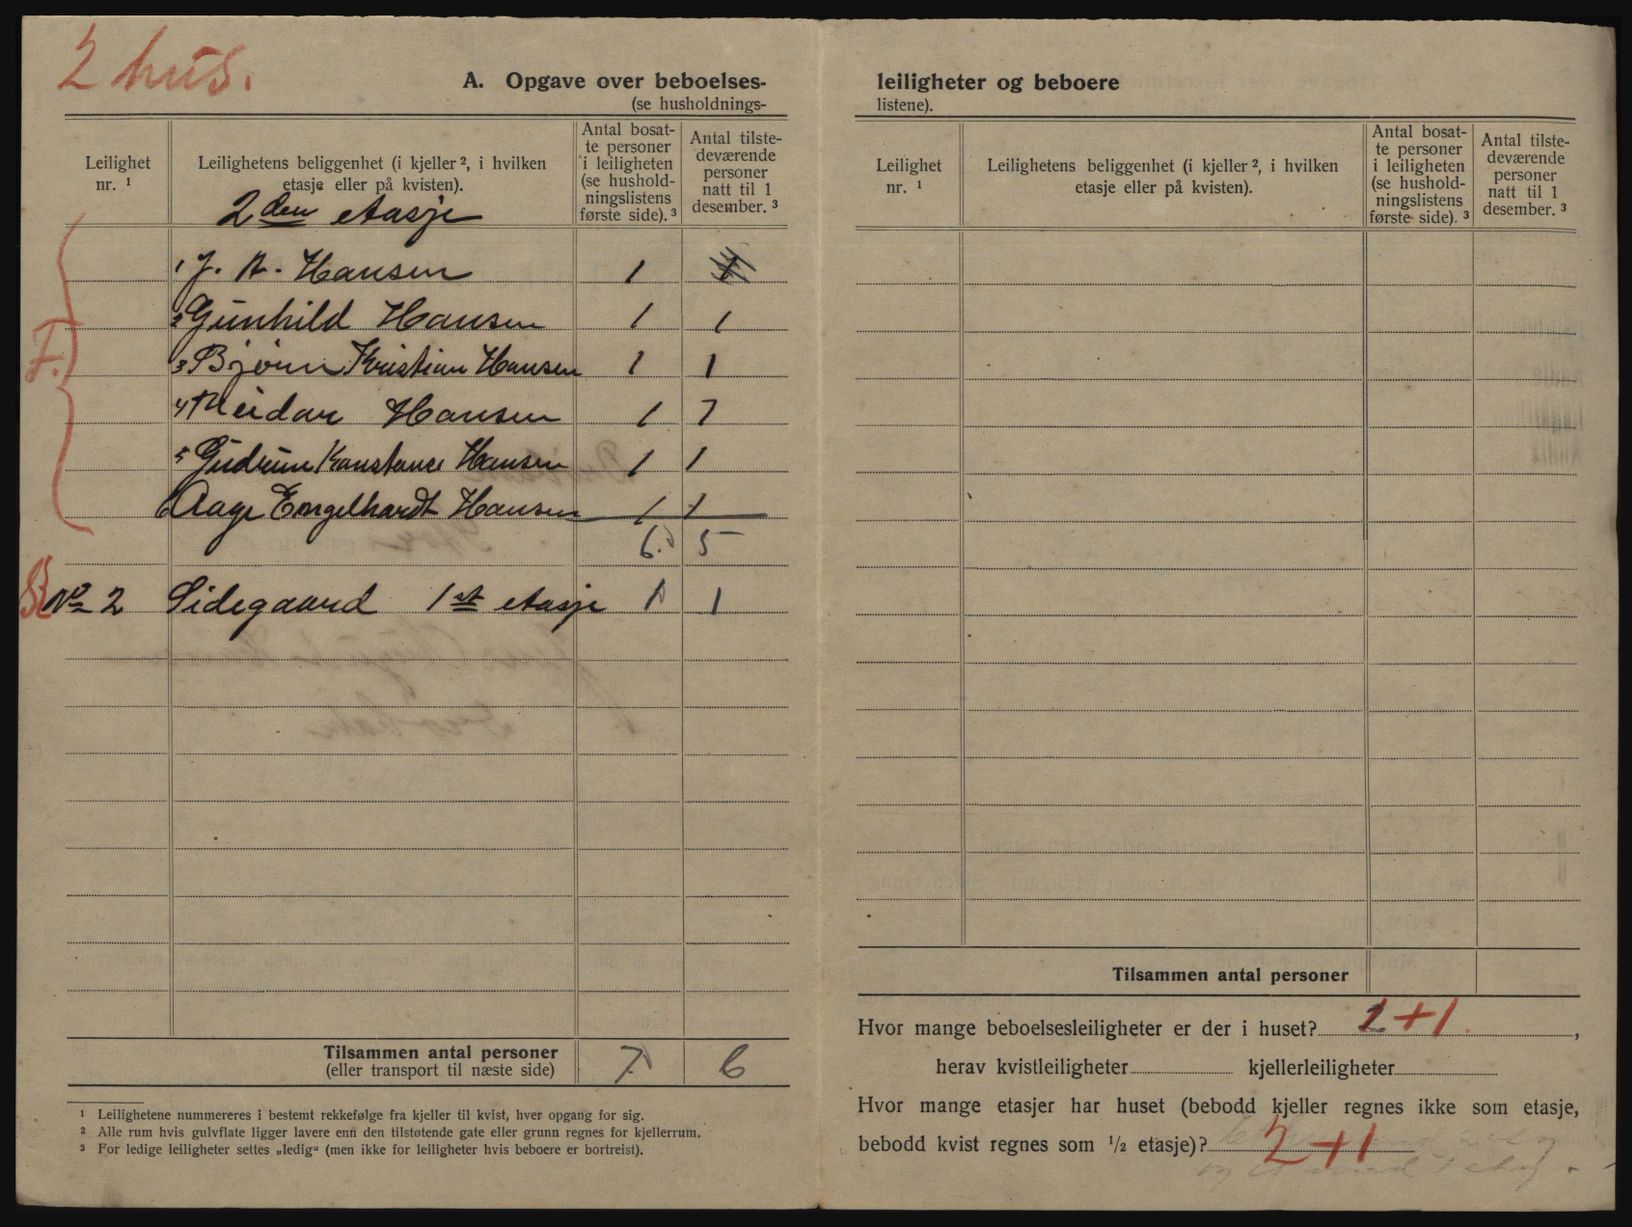 2 hus.
A. Opgave over beboelses-
(se husholdnings-
Leilighet nr. ¹
Leilighetens beliggenhet (i kjeller ², i hvilken etasje eller på kvisten).
Antal bosat-te personer i leiligheten (se hushold-ningslistens første side). ³
Antal tilste-deværende personer natt til 1 desember. ³
2den etasje
1 J. A. Hansen 1
2 Gunhild Hansen 1 1
F. 3 Bjørn Kristian Hansen 1 1
4 Reidar Hansen 1 1
5 Gudrun Konstance Hansen 1 1
6 Aage Engelhardt Hansen 1 1
6. 5
No 2 Sidegaard 1st etasje 1 1
Tilsammen antal personer 7 6
(eller transport til næste side)
¹ Leilighetene nummereres i bestemt rekkefølge fra kjeller til kvist, hver opgang for sig.
² Alle rum hvis gulvflate ligger lavere enn den tilstøtende gate eller grunn regnes for kjellerrum.
³ For ledige leiligheter settes „ledig“ (men ikke for leiligheter hvis beboere er bortreist).
leiligheter og beboere
listene).
Leilighet nr. ¹
Leilighetens beliggenhet (i kjeller ², i hvilken etasje eller på kvisten).
Antal bosat-te personer i leiligheten (se hushold-ningslistens første side). ³
Antal tilste-deværende personer natt til 1 desember. ³
Tilsammen antal personer
Hvor mange beboelsesleiligheter er der i huset? 1+1.,
herav kvistleiligheter kjellerleiligheter
Hvor mange etasjer har huset (bebodd kjeller regnes ikke som etasje,
bebodd kvist regnes som ½ etasje)? 2+1